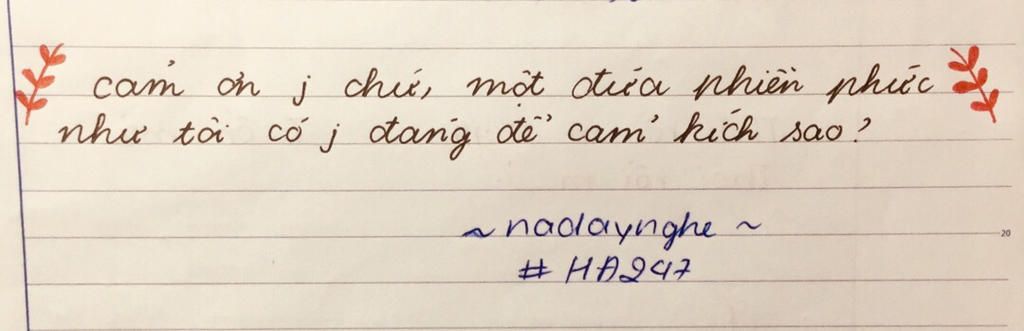 cảm ơn j chứ, một đứa phiền phức
như tôi có j đáng để cảm kích sao?
~ nadaynghe ~
# HA247
20